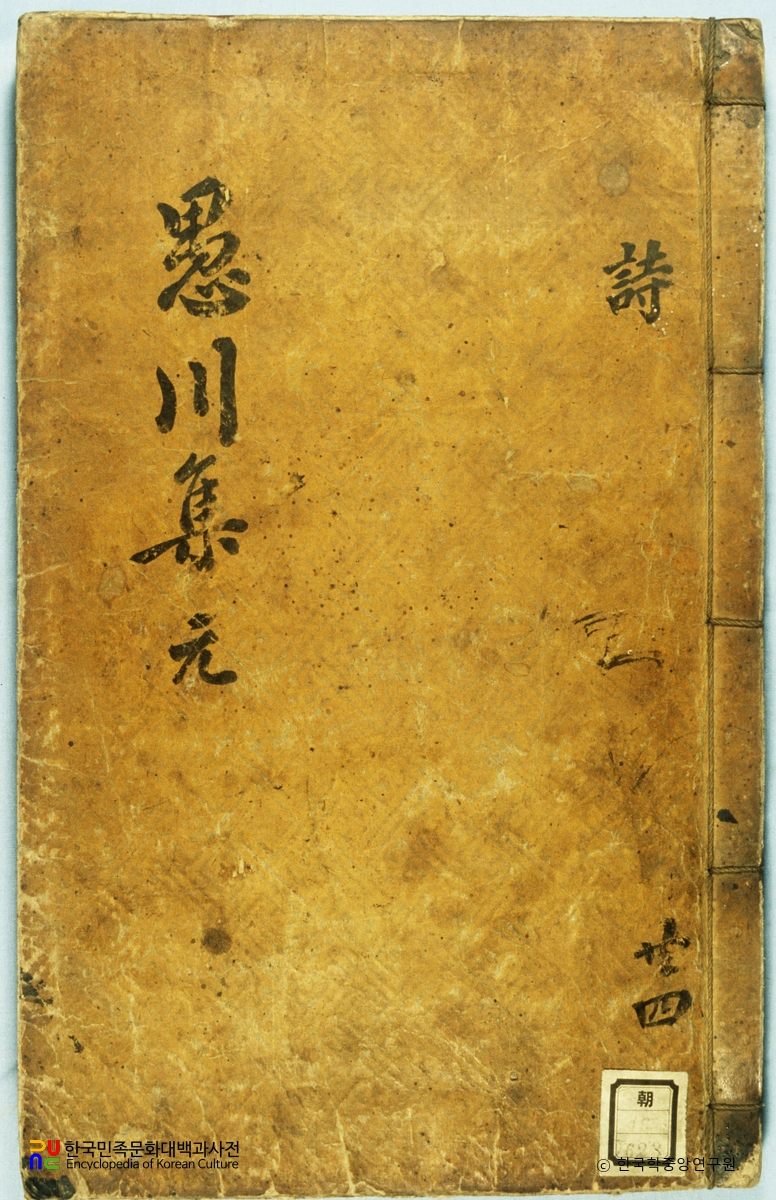 詩
廿四
愚川集 元
朝
한국민족문화대백과사전
Encyclopedia of Korean Culture
© 한국학중앙연구원